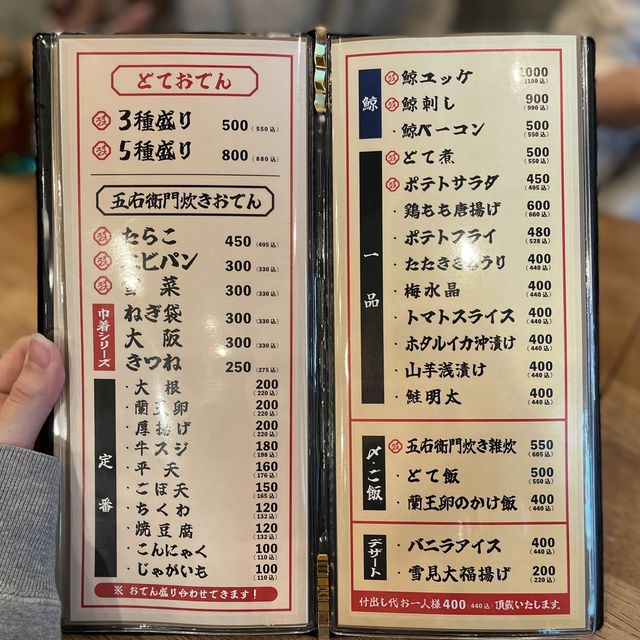 どておでん
3種盛り 500(550込)
5種盛り 800(880込)
五右衛門炊きおでん
たらこ 450(495込)
エビパン 300(330込)
菜 300(330込)
巾着シリーズ
ねぎ袋 300(330込)
大阪 300(330込)
きつね 250(275込)
定番
・大根 200(220込)
・蘭王卵 200(220込)
・厚揚げ 200(220込)
・牛スジ 180(198込)
・平天 160(176込)
・ごぼ天 150(165込)
・ちくわ 120(132込)
・焼豆腐 120(132込)
・こんにゃく 100(110込)
・じゃがいも 100(110込)
※おでん盛り合わせできます!
鯨
鯨ユッケ 1000(1100込)
鯨刺し 900(990込)
・鯨ベーコン 500(550込)
一品
どて煮 500(550込)
ポテトサラダ 450(495込)
・鶏もも唐揚げ 600(660込)
・ポテトフライ 480(528込)
・たたききゅうり 400(440込)
・梅水晶 400(440込)
・トマトスライス 400(440込)
・ホタルイカ沖漬け 400(440込)
・山芋浅漬け 400(440込)
・鮭明太 400(440込)
〆・ご飯
五右衛門炊き雑炊 550(605込)
・どて飯 500(550込)
・蘭王卵のかけ飯 400(440込)
デザート
・バニラアイス 400(440込)
・雪見大福揚げ 200(220込)
付出し代お一人様400(440込)頂戴いたします。